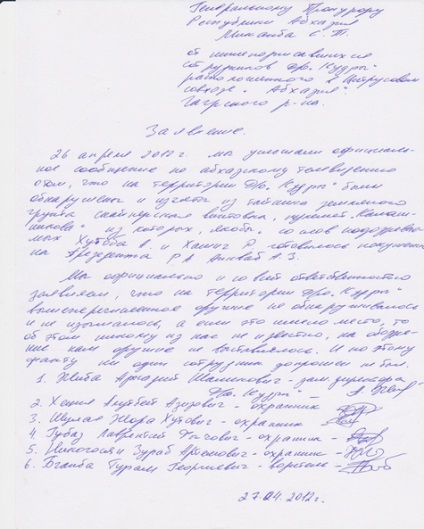 Генеральному Прокурору
Республики Абхазия
Миканба С. П.
от нижеподписавшихся
сотрудников д/о. "Кудры"
расположенного в Цитрусовом
совхозе "Абхазия"
Гагрского р-на.
Заявление.
26 апреля 2012г. мы услышали официаль-
ное сообщение по абхазскому телевидению
о том, что на территории д/о. "Кудры" были
обнаружены и изъяты из тайника земляного
грунта снайперская винтовка, пулемет "Калаш-
никова" из которых, якобы со слов подозревае-
мых Хутаба А. и Хашиг Р. готовилось покушение
на Президента Р А Анкваб А.З.
Мы официально и со всей ответственностью
заявляем, что на территории д/о. "Кудры"
вышеперечисленное оружие не обнаруживалось
и не изымалось, а если это имело место, то
об этом никому из нас не известно, на обозре-
ние нам оружие не выставлялось. И по этому
факту ни один сотрудник допрошен не был.
1. Аркадий - зам директора
д/о. "Кудры" -
2. - охранник
3. Жора Хутович - охранник -
4. Губаз - охранник -
5. Зураб - охранник -
6. Бганба Гурам Георгиевич -
27.04.2012г.